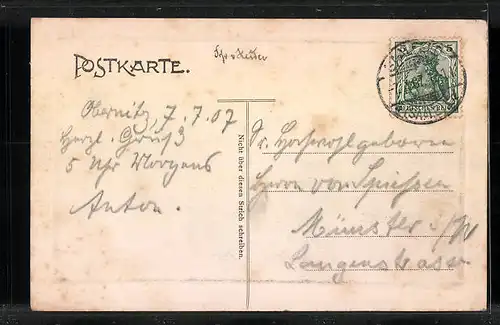 POSTKARTE.
Obernitz, 7.7.07
Herzl. Gruß
5 Uhr Morgens
Anton.
Nicht über diesen Strich schreiben.
Sr. Hochwohlgeboren
Herrn von Spießen
Münster i/W
Langenstrasse